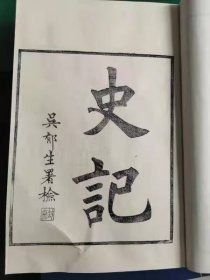 史記
吳郁生署檢